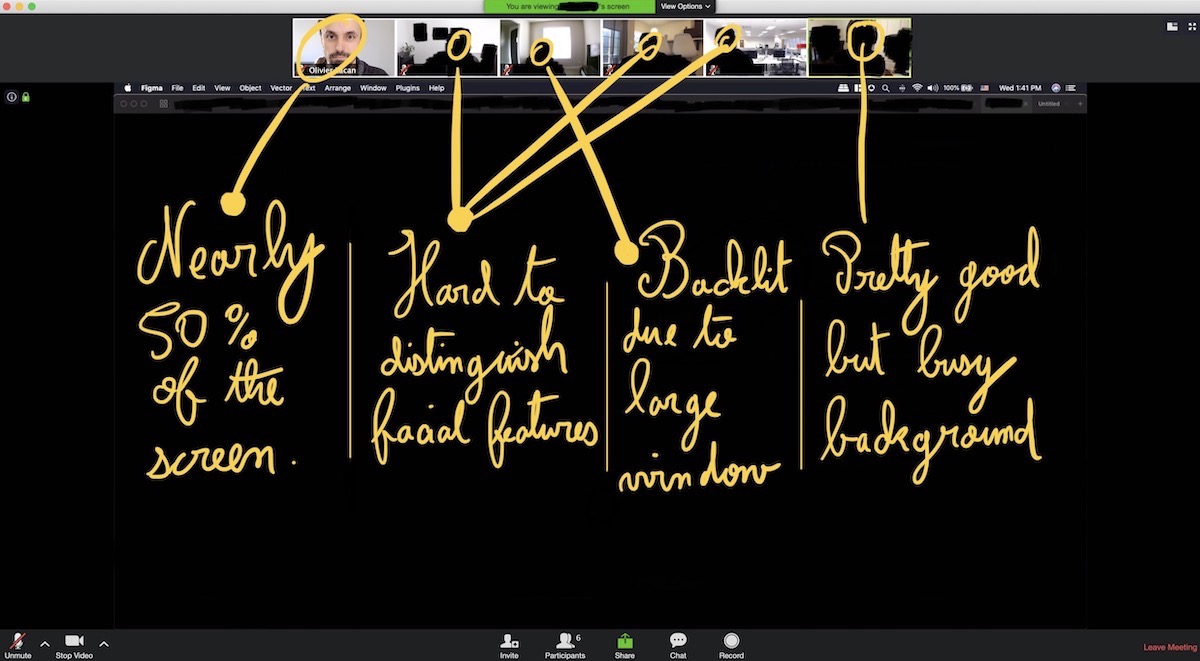 You are viewing 's screen
View Options
Olivier Lacan
Figma File Edit View Object Vector Text Arrange Window Plugins Help
100% Wed 1:41 PM
Untitled
Nearly
50%
of the
screen.
Hard to
distinguish
facial features
Backlit
due to
large
window
Pretty good
but busy
background
Unmute
Stop Video
Invite
Participants 6
Share
Chat
Record
Leave Meeting